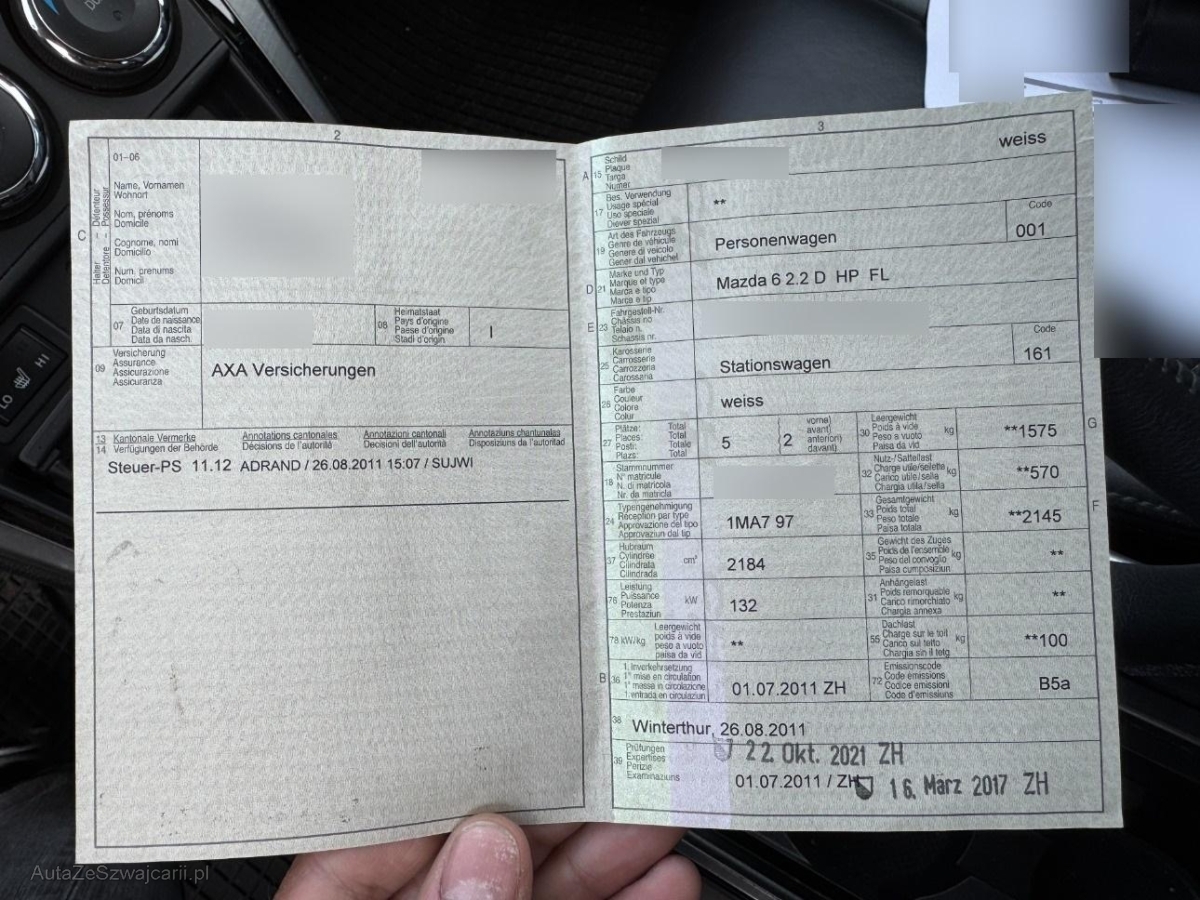 2
01-06
C
Halter – Détenteur
Detentore – Possessur
Name, Vornamen
Wohnort
Nom, prénoms
Domicile
Cognome, nomi
Domicilio
Num, prenums
Domicil
07
Geburtsdatum
Date de naissance
Data di nascita
Data da nasch.
08
Heimatstaat
Pays d'origine
Paese d'origine
Stadi d'origin
I
09
Versicherung
Assurance
Assicurazione
Assicuranza
AXA Versicherungen
13 Kantonale Vermerke Annotations cantonales Annotazioni cantonali Annotaziuns chantunalas
14 Verfügungen der Behörde Décisions de l'autorité Decisioni dell'autorità Disposiziuns da l'autoritad
Steuer-PS 11.12 ADRAND / 26.08.2011 15:07 / SUJWI
3
A 15
Schild
Plaque
Targa
Numer
weiss
17
Bes. Verwendung
Usage spécial
Uso speciale
Diever spezial
**
19
Art des Fahrzeugs
Genre de véhicule
Genere di veicolo
Gener dal vehichel
Personenwagen
Code
001
D 21
Marke und Typ
Marque et type
Marca e tipo
Marca e tip
Mazda 6 2.2 D HP FL
E 23
Fahrgestell-Nr.
Châssis no
Telaio n.
Schassis nr.
25
Karosserie
Carrosserie
Carrozzeria
Carossaria
Stationswagen
Code
161
26
Farbe
Couleur
Colore
Colur
weiss
27
Plätze: Total
Places: Total
Posti: Totale
Plazs: Total
5
vorne)
avant)
anteriori)
davant)
2
30
Leergewicht
Poids à vide
Peso a vuoto
Paisa da vid
kg
**1575
G
18
Stammnummer
N° matricule
N. di matricola
Nr. da matricla
32
Nutz-/Sattellast
Charge utile/sellette
Carico utile/sella
Chargia utila/sella
kg
**570
24
Typengenehmigung
Réception par type
Approvazione del tipo
Approvaziun dal tip
1MA7 97
33
Gesamtgewicht
Poids total
Peso totale
Paisa totala
kg
**2145
F
37
Hubraum
Cylindrée
Cilindrata
Cilindrada
cm³
2184
35
Gewicht des Zuges
Poids de l'ensemble
Peso del convoglio
Paisa cumposiziun
kg
**
76
Leistung
Puissance
Potenza
Prestaziun
kW
132
31
Anhängelast
Poids remorquable
Carico rimorchiato
Chargia annexa
kg
**
78 kW/kg
Leergewicht
poids à vide
peso a vuoto
paisa da vid
**
55
Dachlast
Charge sur le toit
Carico sul tetto
Chargia sin il tetg
kg
**100
B 36
1. Inverkehrsetzung
1re mise en circulation
1a messa in circolazione
1. entrada en circulaziun
01.07.2011 ZH
72
Emissionscode
Code émissions
Codice emissioni
Code d'emissions
B5a
38
Winterthur, 26.08.2011
39
Prüfungen
Expertises
Perizie
Examinaziuns
22. Okt. 2021 ZH
01.07.2011 / ZH
16. März 2017 ZH
LO
HI
AutaZeSzwajcarii.pl